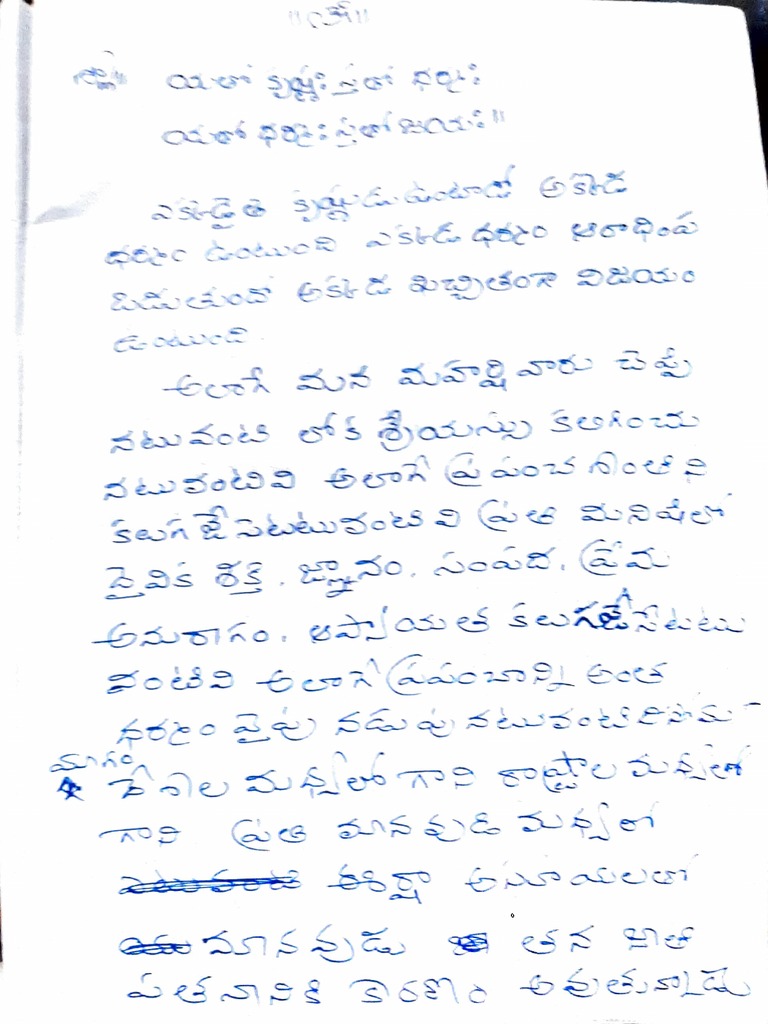 ॥ఓం॥
శ్లో॥ యతో కృష్ణః స్తతో ధర్మః
యతో ధర్మః స్తతో జయః॥
ఎక్కడైతే కృష్ణుడు ఉంటాడో అక్కడ
ధర్మం ఉంటుంది ఎక్కడ ధర్మం ఆరాధింప
బడుతుందో అక్కడ ఖచ్చితంగా విజయం
ఉంటుంది.
అలాగే మన మహర్షి వారు చెప్పే
నటువంటి లోక శ్రేయస్సు కలిగించు
నటువంటివి అలాగే ప్రపంచ శాంతిని
కలుగ జేసెటటువంటివి ప్రతి మనిషిలో
దైవిక శక్తి, జ్ఞానం, సంపద, ప్రేమ
అనురాగం, ఆప్యాయత కలుగజేసేటటు
వంటివి అలాగే ప్రపంచాన్ని అంత
ధర్మం వైపు నడుపు నటువంటి
యాగం
దేశాల మధ్యలో గాని రాష్ట్రాల మధ్యలో
గాని ప్రతి మానవుడి మధ్యలో
ఈర్ష్యా అసూయలతో
మానవుడు తన జాతి
పతనానికి కారణం అవుతున్నాడు